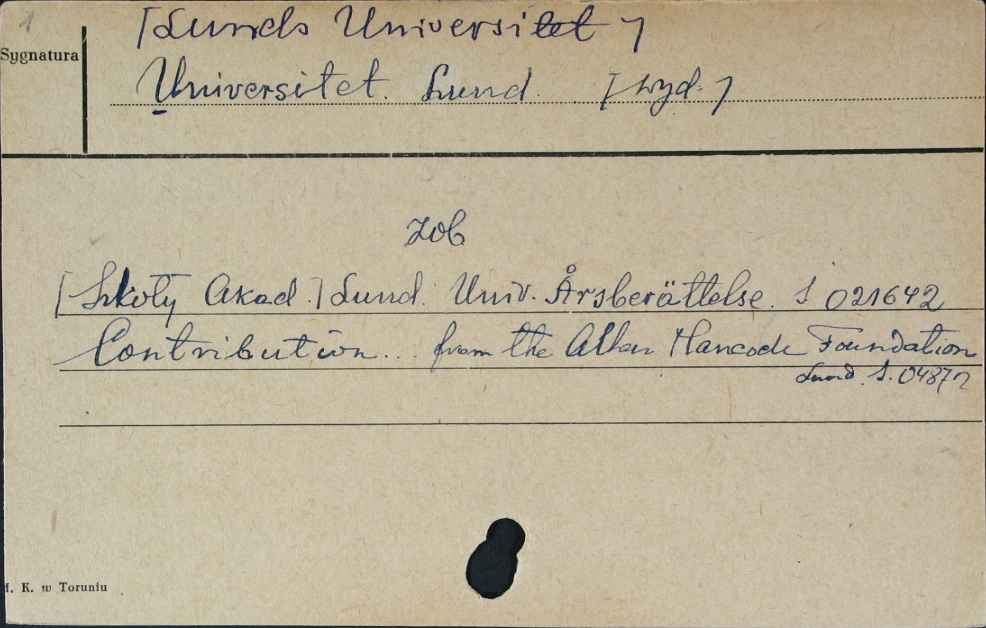 1
[Lunds Universitet]
Sygnatura
Universitet. Lund. [wyd.]
zob
[Szkoły Akad.] Lund. Univ. Årsberättelse. S 021642
Contribution... from the Allan Hancock Foundation
Lund. S. 04872
K. w Toruniu